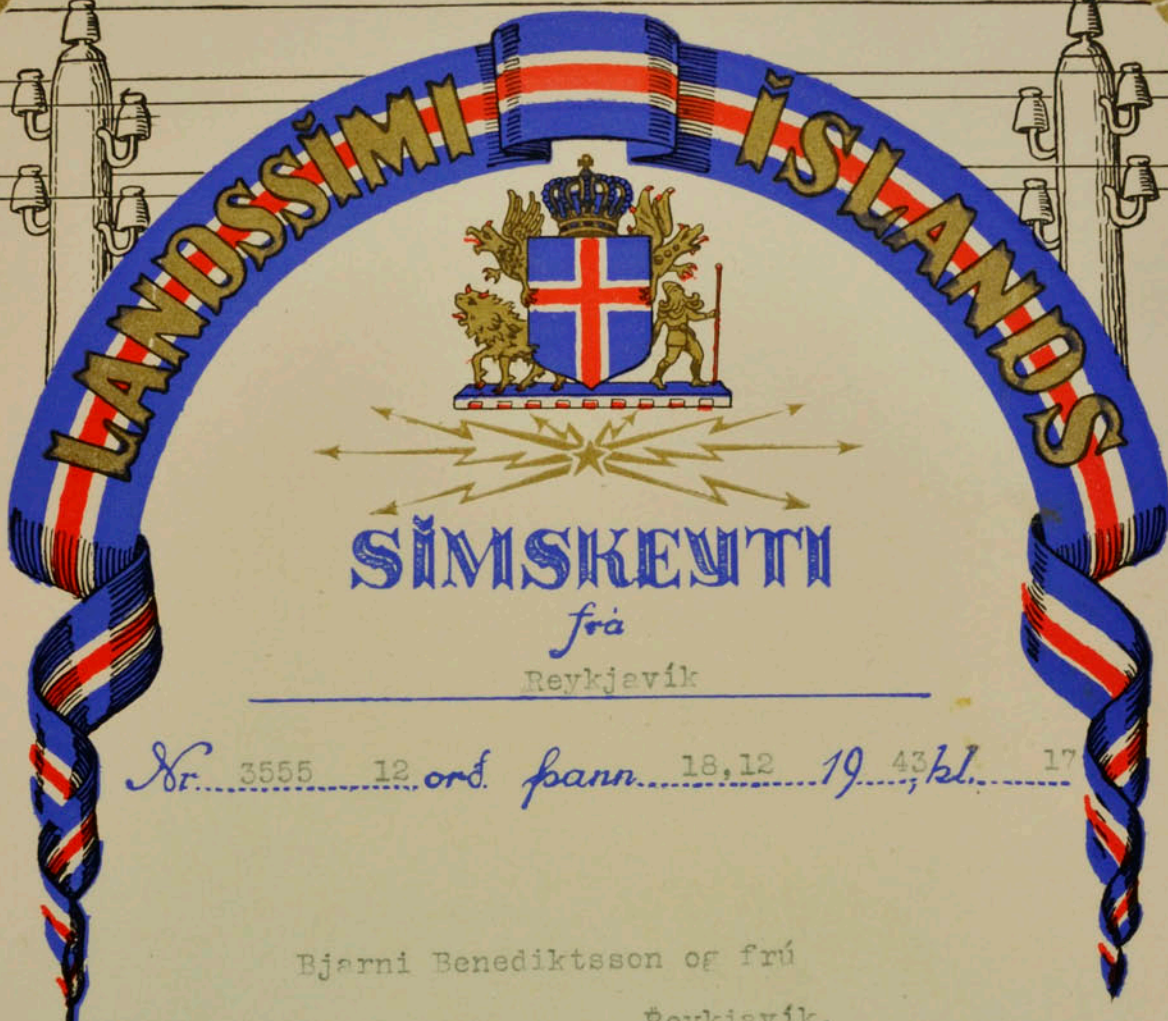 LANDSSÍMI ÍSLANDS
SÍMSKEYTI
frá
Reykjavík
Nr. 3555 12 orð. þann 18,12 19 43, kl. 17
Bjarni Benediktsson og frú
Reykjavík.